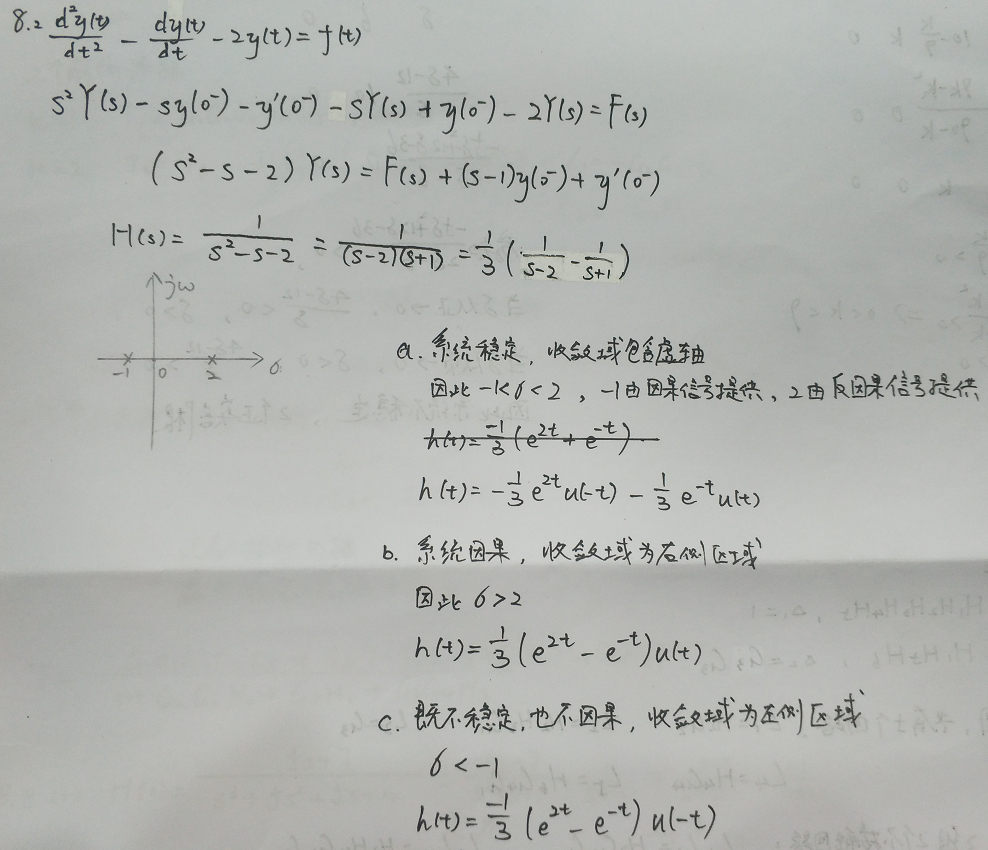 8.2 d²y(t)/dt² - dy(t)/dt - 2y(t) = f(t)
s²Y(s) - sy(0⁻) - y'(0⁻) - sY(s) + y(0⁻) - 2Y(s) = F(s)
(s² - s - 2) Y(s) = F(s) + (s-1)y(0⁻) + y'(0⁻)
H(s) = 1/(s²-s-2) = 1/((s-2)(s+1)) = 1/3 (1/(s-2) - 1/(s+1))
jω
-1 0 2 σ
a. 系统稳定, 收敛域包含虚轴
因此 -1<σ<2 , -1由因果信号提供, 2由反因果信号提供
h(t) = -1/3 (e^{2t} + e^{-t})
h(t) = -1/3 e^{2t} u(-t) - 1/3 e^{-t} u(t)
b. 系统因果, 收敛域为右侧区域
因此 σ>2
h(t) = 1/3 (e^{2t} - e^{-t}) u(t)
c. 既不稳定, 也不因果, 收敛域为左侧区域
σ < -1
h(t) = -1/3 (e^{2t} - e^{-t}) u(-t)